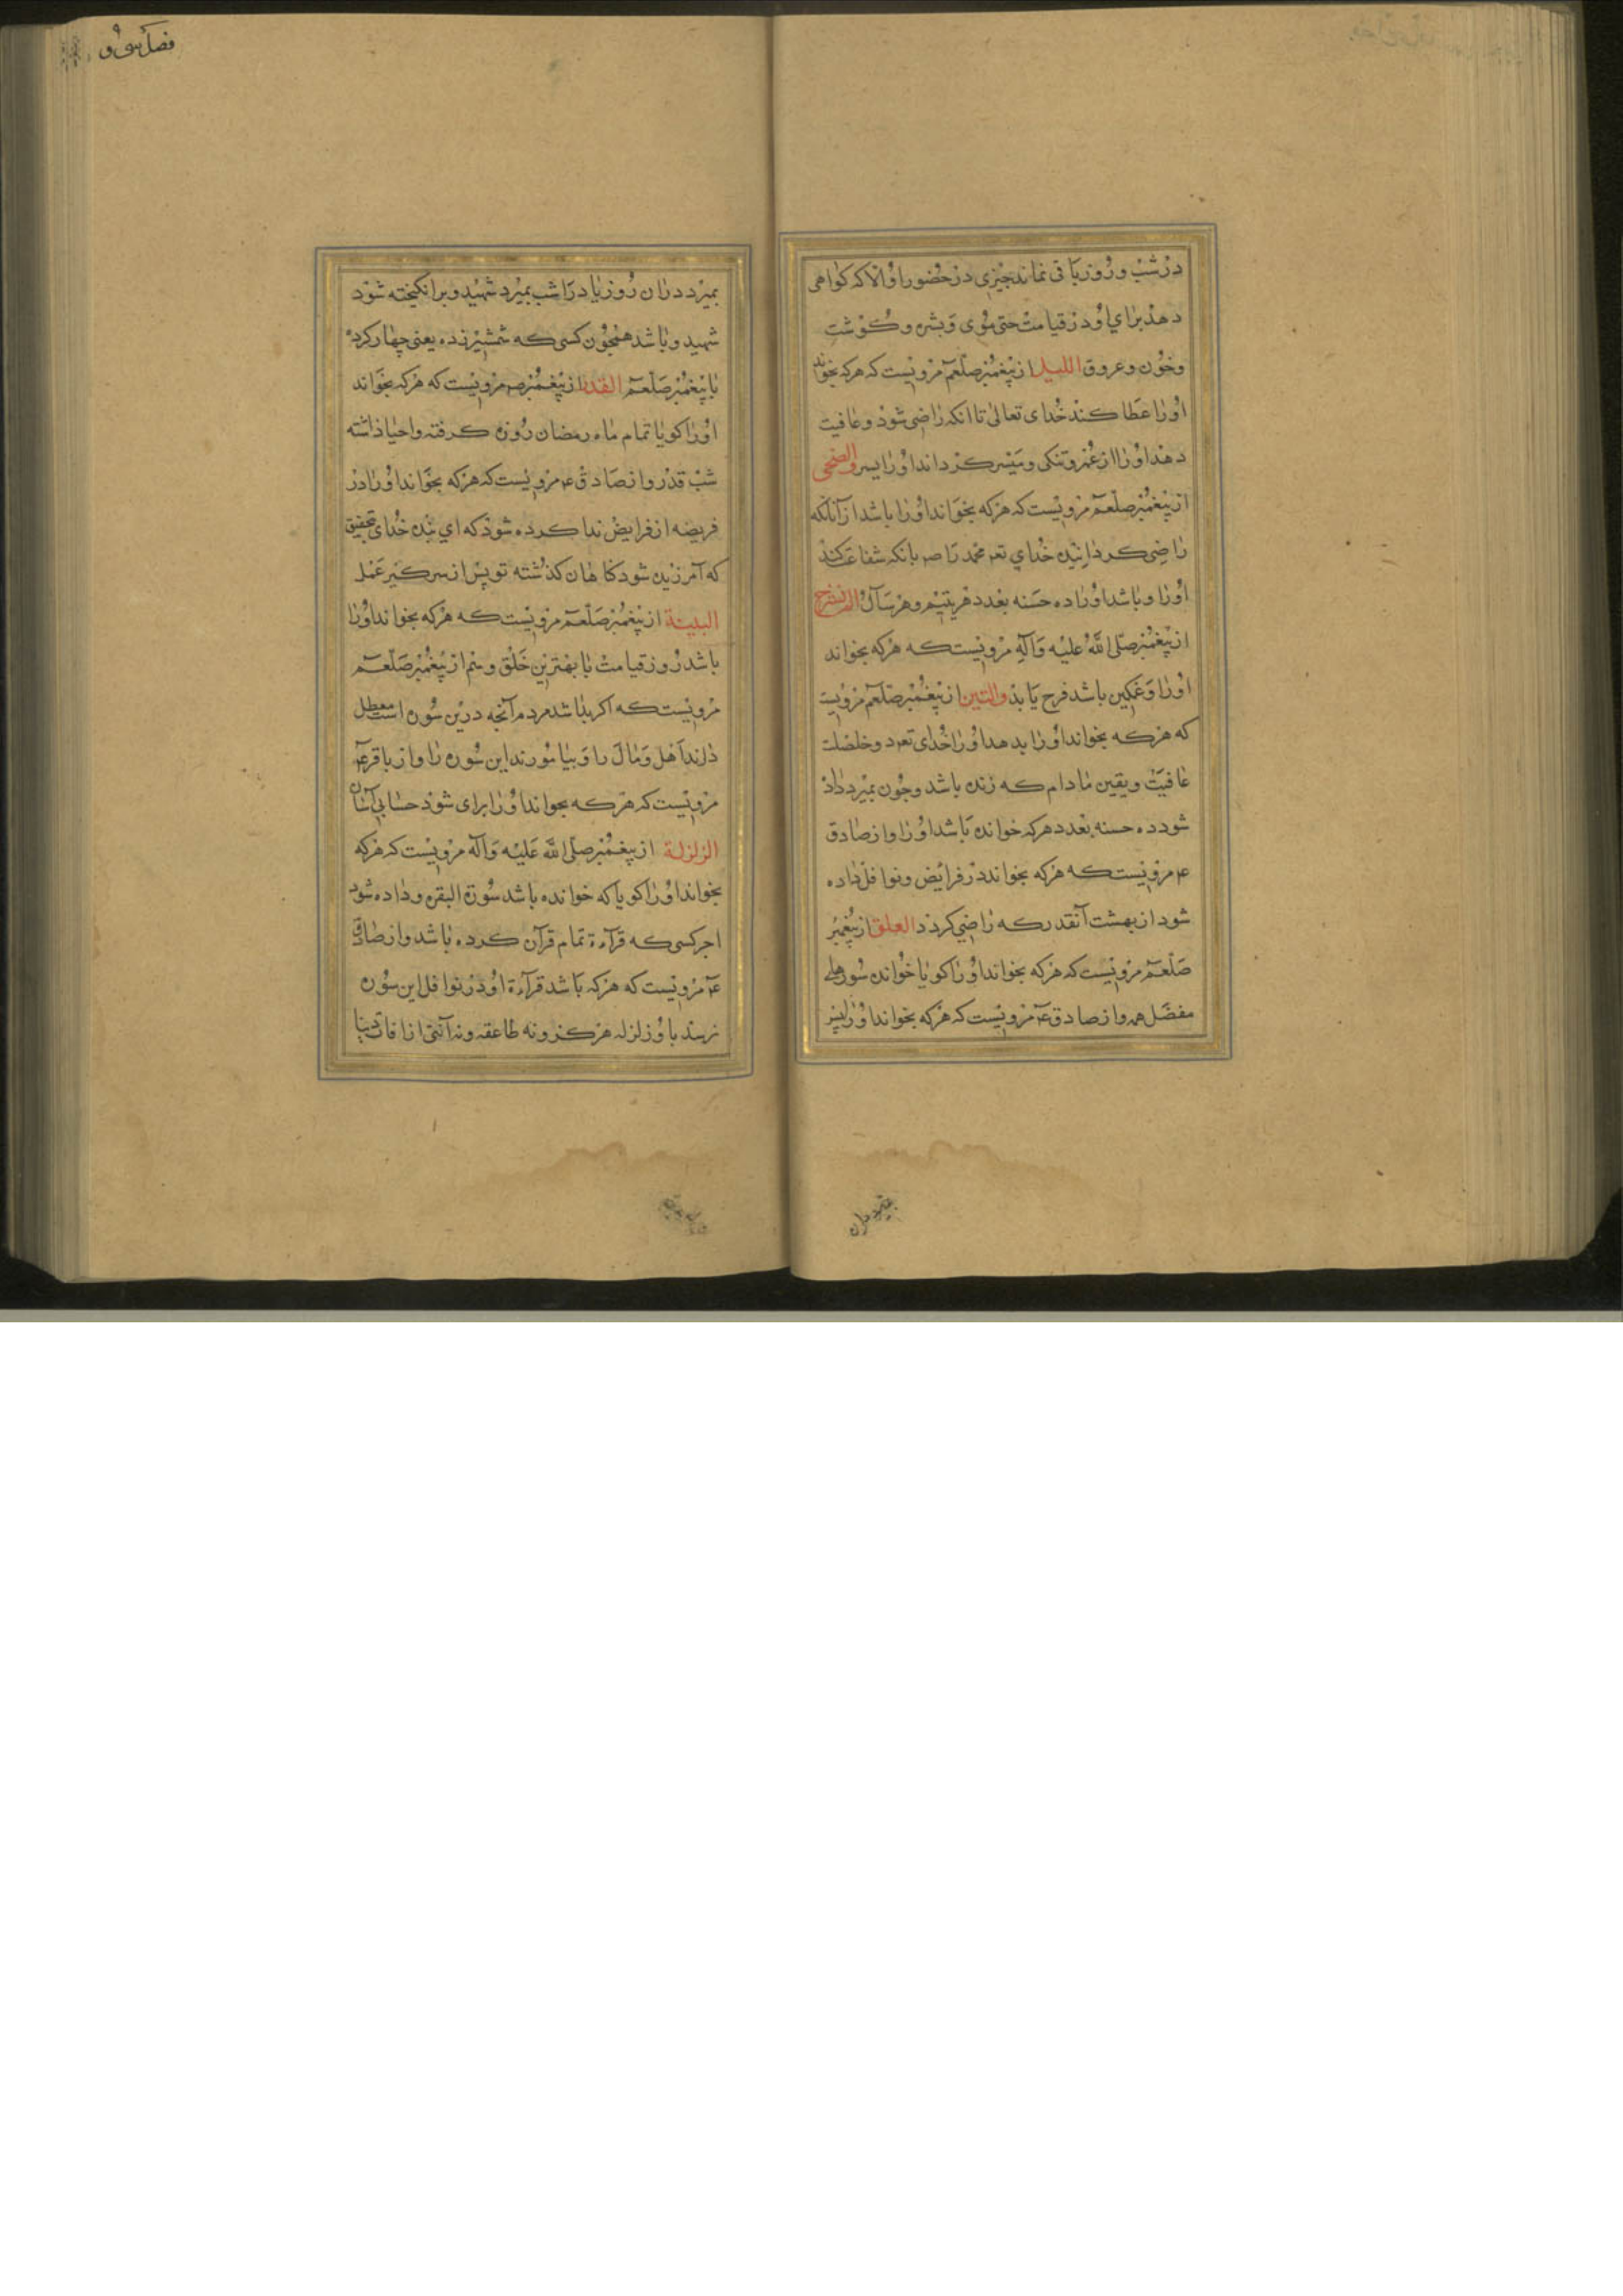 در شب و روز باقی نماند چیزی در حضور او الا که کواهی
دهد برای او در قیامت حتی موی و بشره و کوشت
و خون و عروق اللیل از پیغمبر صلعم مرویست که هرکه بخواند
او را عطا کند خدای تعالی تا آنکه راضی شود و عافیت
دهد او را از عسر و تنکی و میسر کرداند او را یسر والضحی
از پیغمبر صلعم مرویست که هرکه بخواند او را باشد از آنانکه
راضی کردانیده خدای تعه محمد را صم بانکه شفاعت کند
او را و باشد او را ده حسنه بعدد هر یتیم و هر سائل الم نشرح
از پیغمبر صلی الله علیه وآله مرویست که هرکه بخواند
او را و غمکین باشد فرح یابد والتین از پیغمبر صلعم مرویست
که هرکه بخواند او را بدهد او را خدای تعه دو خصلت
عافیت و یقین مادام که زنده باشد و چون بمیرد داد
شود ده حسنه بعدد هرکه خوانده باشد او را و از صادق
ع مرویست که هرکه بخواند در فرایض و نوافل داده
شود از بهشت آنقدر که راضی کردد العلق از پیغمبر
صلعم مرویست که هرکه بخواند او را کویا خوانده سورهای
مفصل همه و از صادق ع مرویست که هرکه بخواند او را پس
فصل سی و
بمیرد در ان روز یا در اشب بمیرد شهید و برانکیخته شود
شهید و باشد همچون کسی که شمشیر زده یعنی جهاد کرده
با پیغمبر صلعم القدر از پیغمبر صم مرویست که هرکه بخواند
او را کویا تمام ماه رمضان روزه کرفته و احیا داشته
شب قدر و از صادق ع مرویست که هرکه بخواند او را در
فریضه از فرایض ندا کرده شود که ای بنده خدای تحقیق
که آمرزیده شود کناهان کذشته تو پس از سر کیر عمل
البینة از پیغمبر صلعم مرویست که هرکه بخواند او را
باشد روز قیامت با بهترین خلق و هم از پیغمبر صلعم
مرویست که اکر بدانند مردم آنچه درین سوره است معطل
دارند اهل و مال را و بیاموزند این سوره را و از باقر ع
مرویست که هرکه بخواند او را برای شود حسابی آسان
الزلزلة از پیغمبر صلی الله علیه وآله مرویست که هرکه
بخواند او را کویا که خوانده باشد سورة البقره و داده شود
اجر کسی که قرآءة تمام قرآن کرده باشد و از صادق
ع مرویست که هرکه باشد قرآءة او در نوافل این سوره
نرسد باو زلزله هرکز و نه صاعقه و نه آفتی از آفات دنیا
بمیرد دران